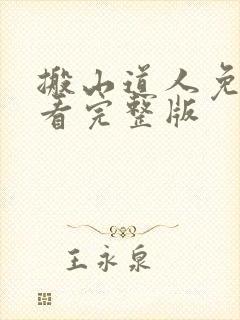 搬山道人免
看完整版
王永泉